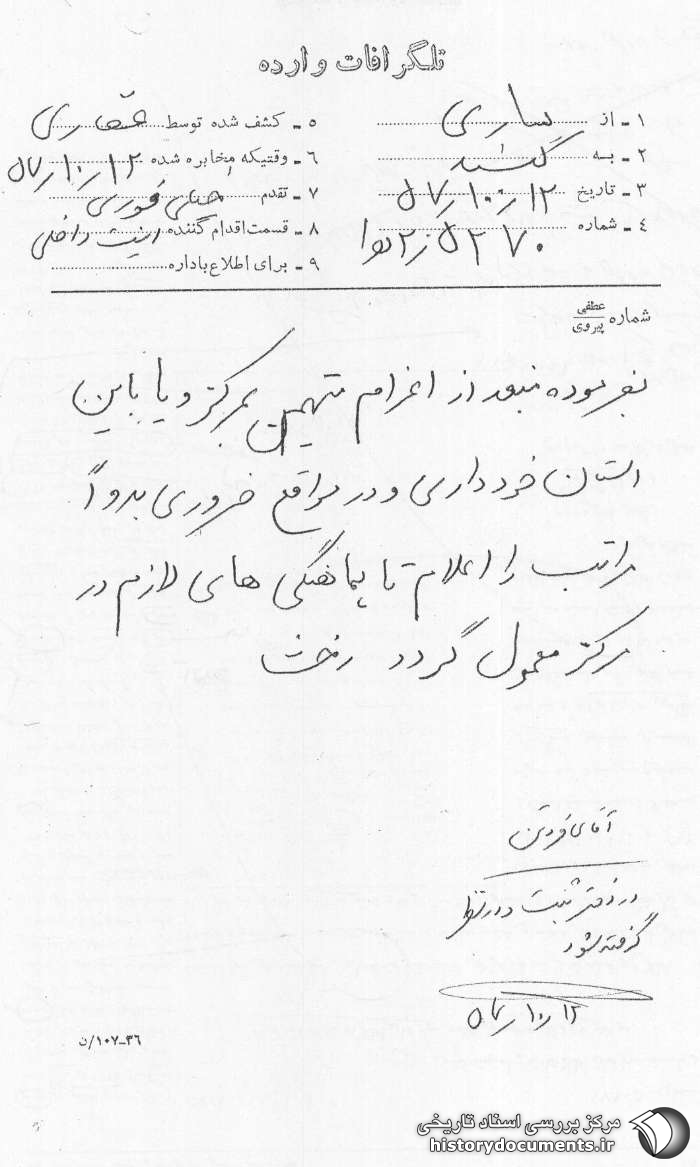 تلگرافات وارده
۱ ـ از ساری
۲ ـ به گنبد
۳ ـ تاریخ ۱۲ ر ۱۰ ر ۵۷
۴ ـ شماره ۵۲۷۰ ر ۲ هوا
۵ ـ کشف شده توسط غفاری
۶ ـ وقتیکه مخابره شده ۱۲ ر ۱۰ ر ۵۷
۷ ـ تقدم خیلی فوری
۸ ـ قسمت اقدام کننده امنیت داخلی
۹ ـ برای اطلاع باداره
شماره عطفی
پیروی
بفرموده منبعد از اعزام متهمین بمرکز و یا باین
استان خودداری و در مواقع ضروری بدواً
مراتب را اعلام تا هماهنگی های لازم در
مرکز معمول گردد
آقای فروتن
در دفتر ثبت و در نظر
گرفته شود
۱۲ ر ۱۰ ر ۵۷
۳۶-۱۰۷/ن
مرکز بررسی اسناد تاریخی
historydocuments.ir